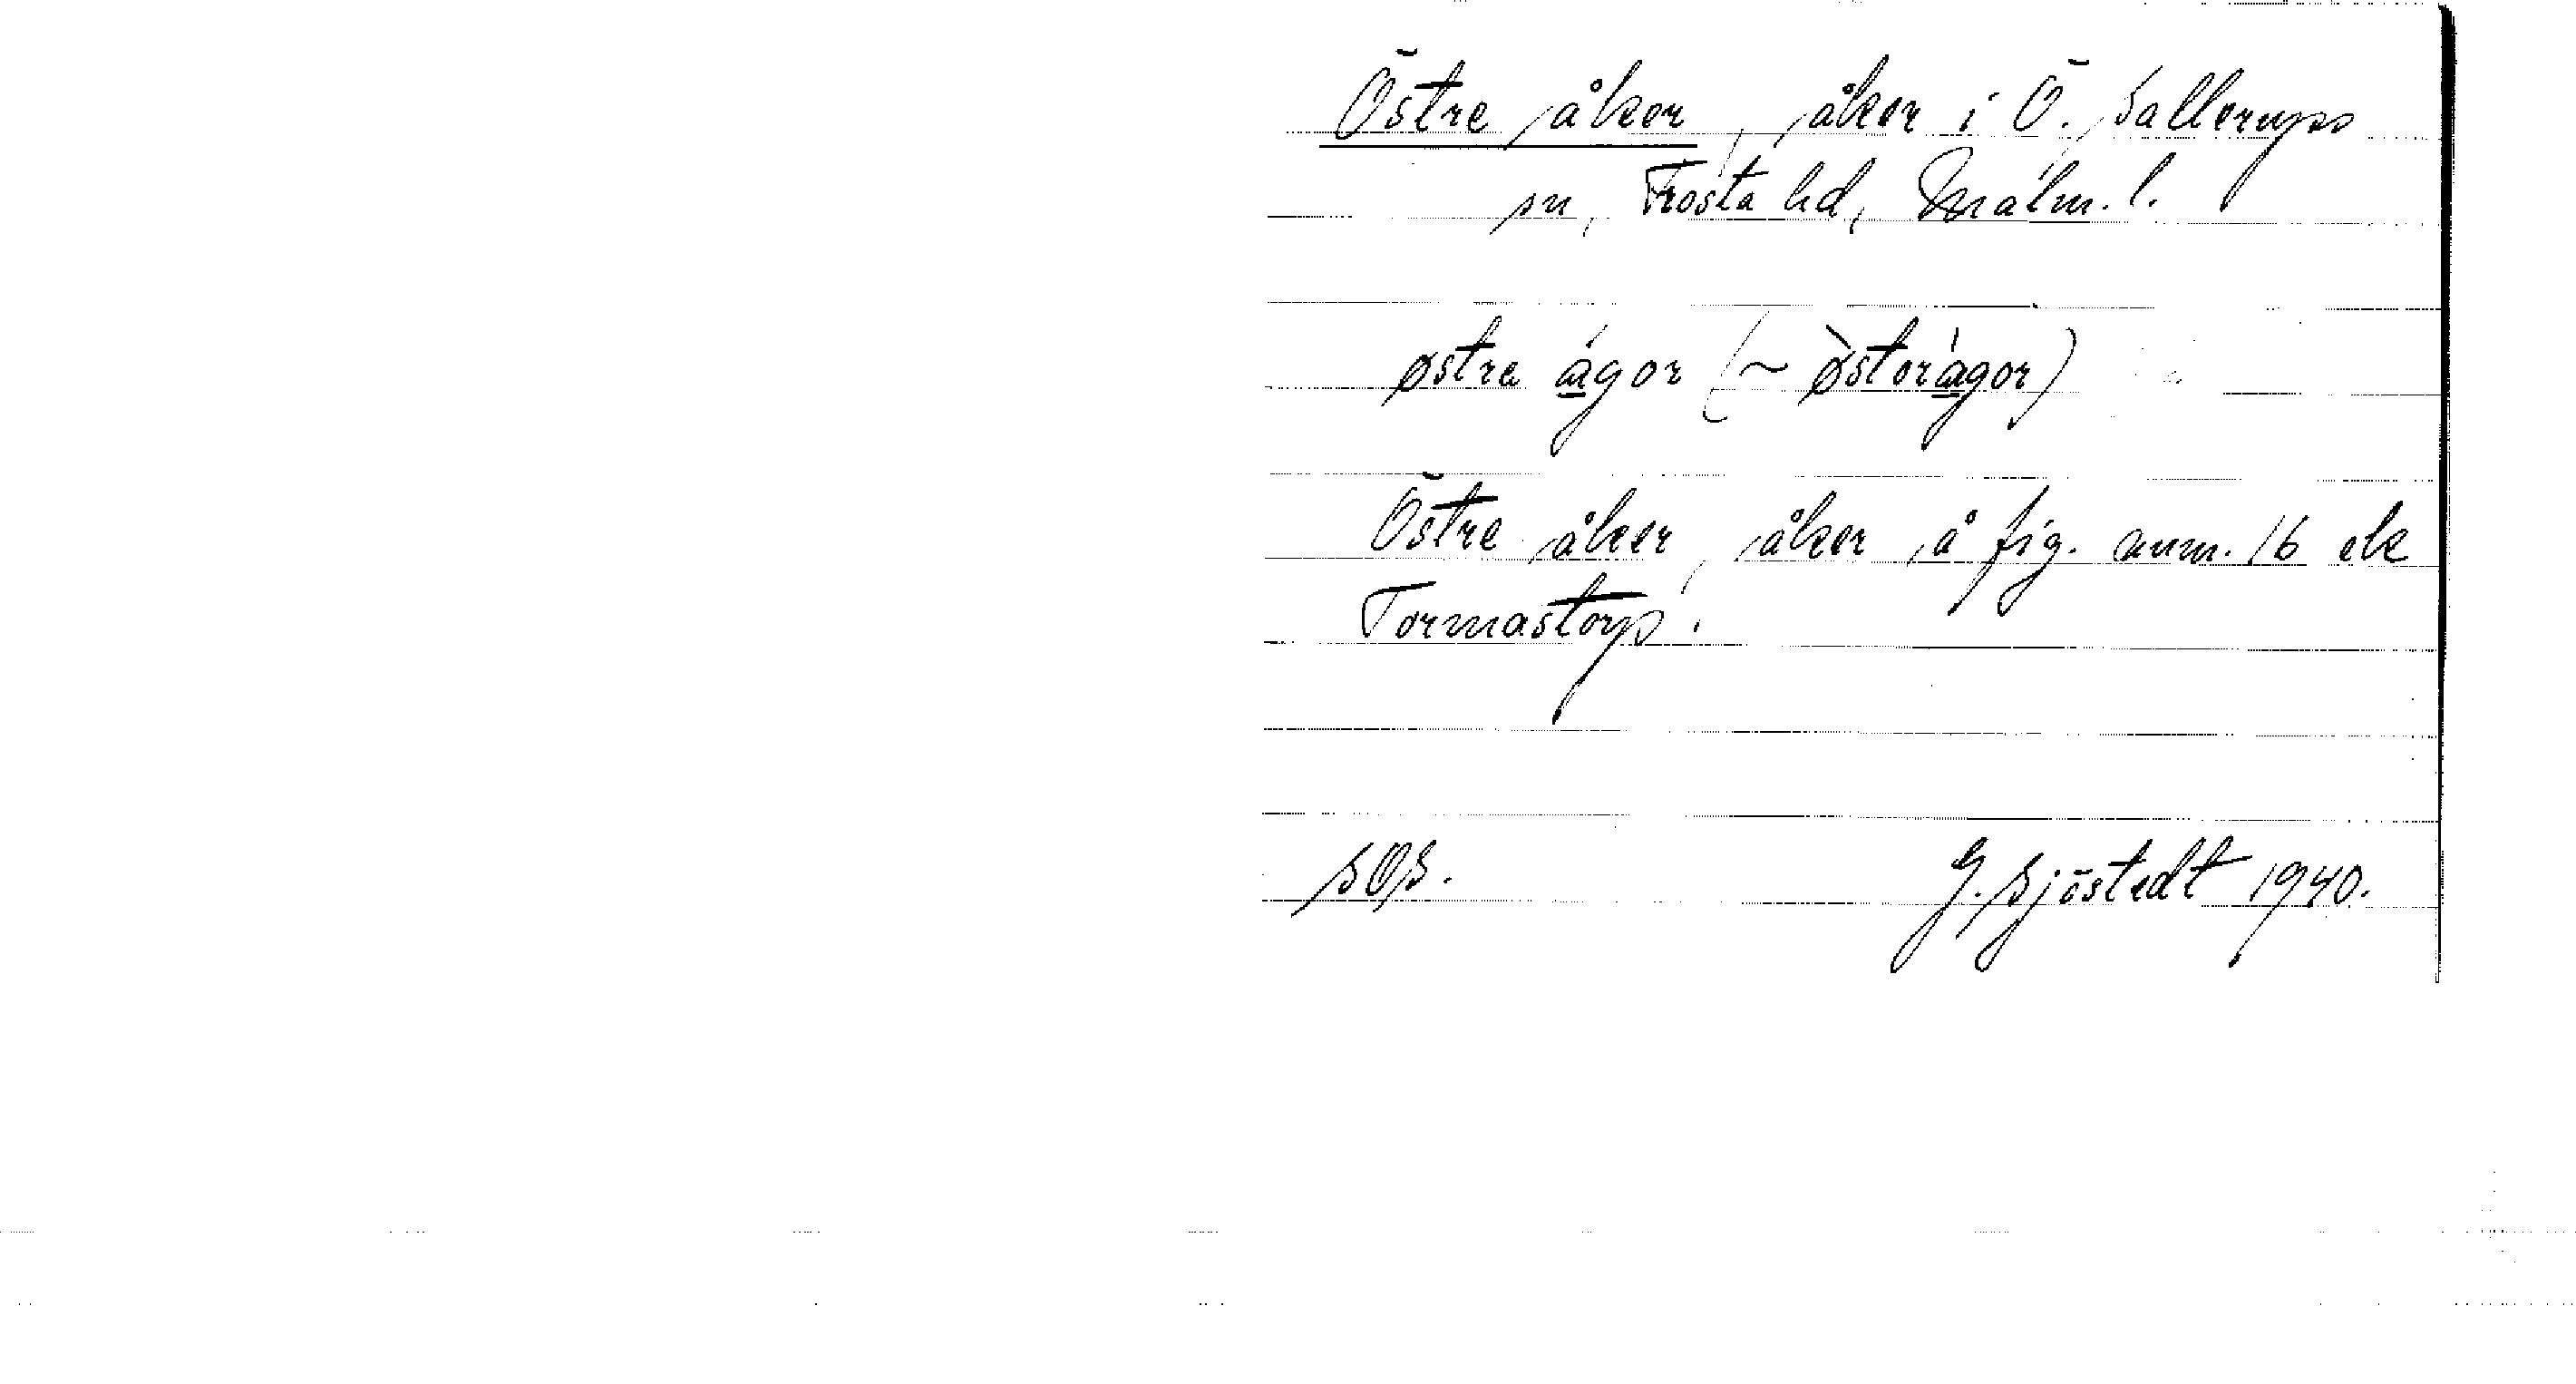 Östre åker, åker i Ö. Sallerups
sn, Frosta hd, Malm. l.
østre ágor (~ østorágor)
Östre åker, åker å fig. anm. 16 ek
Tormastorp.
SOS.
G. Sjöstedt 1940.